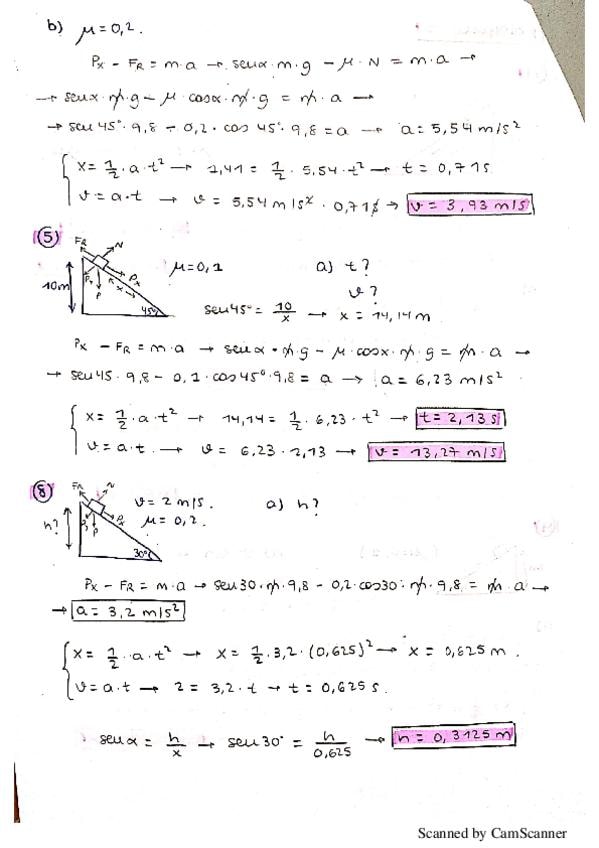 b) μ=0,2.
Px - FR = m·a → senα·m·g - μ·N = m·a →
→ senα·m·g - μ·cosα·m·g = m·a →
→ sen45°·9,8 - 0,2·cos45°·9,8=a → a=5,54 m/s²
x=1/2·a·t² → 1,41 = 1/2·5,54·t² → t=0,71s
v=a·t → v=5,54 m/s²·0,71s → v=3,93 m/s
(5) FR N
Px
P
x
10m
45°
μ=0,1 a) t?
v?
sen45°=10/x → x=14,14m
Px - FR=m·a → senα·m·g - μ·cosα·m·g=m·a →
→ sen45·9,8 - 0,1·cos45°·9,8=a → a=6,23 m/s²
x=1/2·a·t² → 14,14=1/2·6,23·t² → t=2,13s
v=a·t → v=6,23·2,13 → v=13,27 m/s
(8) FR N
Px
P
h?
30°
v=2m/s. a) h?
μ=0,2.
Px - FR=m·a → sen30·m·9,8 - 0,2·cos30·m·9,8=m·a →
→ a=3,2 m/s²
x=1/2·a·t² → x=1/2·3,2·(0,625)² → x=0,625m.
v=a·t → 2=3,2·t → t=0,625s.
senα=h/x → sen30°=h/0,625 → h=0,3125m
Scanned by CamScanner